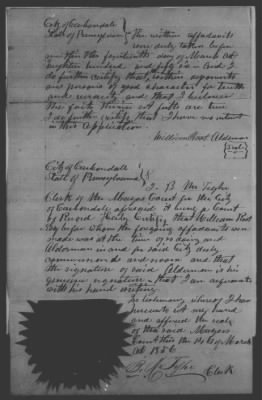 City of Carbondale
State of Pennsylvania } The written affidavits
were duly taken before
me this the fourteenth day of March AD
eighteen hundred and fifty six And I
do further certify that, written deponents
are persons of good character for truth
and veracity and that I believe
the facts therein set forth are true
I do further certify that I have no interest
in this Application
William Root Alderman
Seal
City of Carbondale
State of Pennsylvania }
Clerk of the Mayors Court for the City
of Carbondale aforesaid it being a Court
by Record Hereby Certify that William Root
Esq before whom the forgoing affidavits were
made was at the time of so doing and
Alderman in and for said City duly
commissioned and sworn and that
the signature of said Alderman is his
genuine signature that I am acquainted
with his hand writing
In testimony whereof I have
hereunto set my hand
and affixed the seal
of the said Mayors
Court this the 14th of March
AD 1856
Clerk